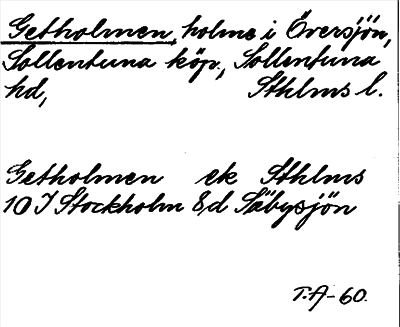 Getholmen, holme i Översjön,
Sollentuna köp., Sollentuna
hd, Sthlms l.
Getholmen ek Sthlms
10 I Stockholm 8d Säbysjön
T.A-60.